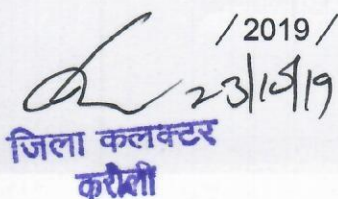 / 2019 /
23/10/19
जिला कलक्टर
करौली